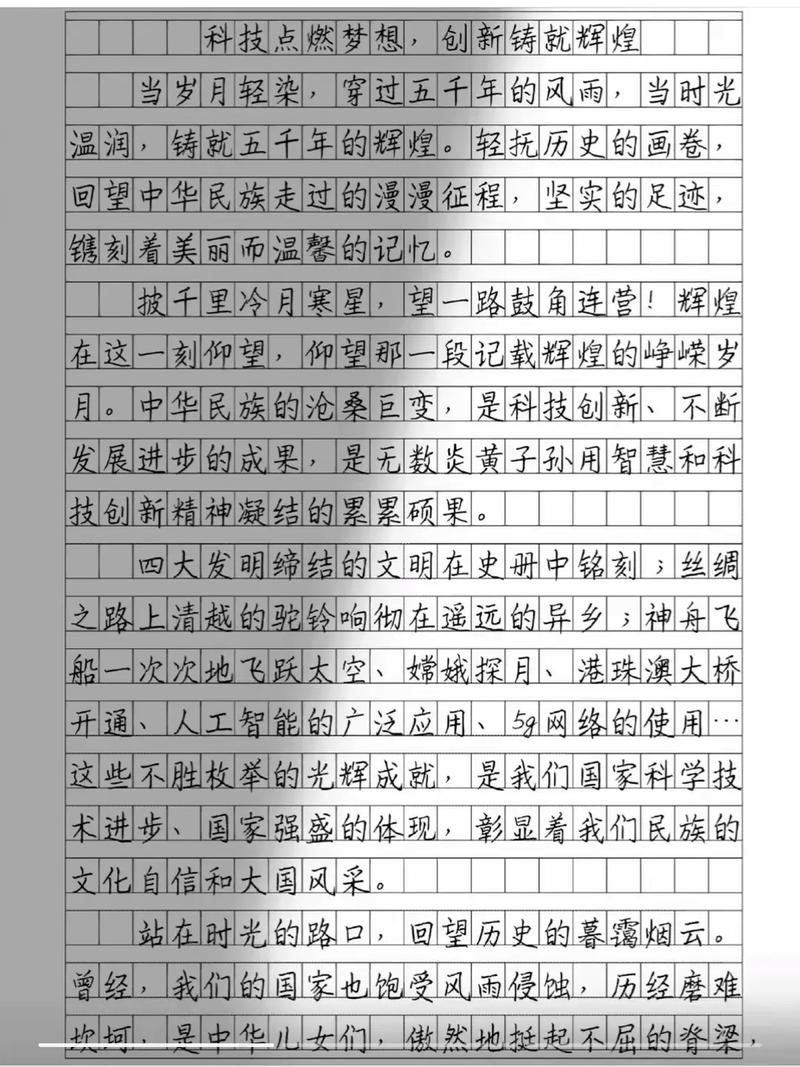 科技点燃梦想，创新铸就辉煌
当岁月轻染，穿过五千年的风雨，当时光
温润，铸就五千年的辉煌。轻抚历史的画卷，
回望中华民族走过的漫漫征程，坚实的足迹，
镌刻着美丽而温馨的记忆。
披千里冷月寒星，望一路鼓角连营！辉煌
在这一刻仰望，仰望那一段记载辉煌的峥嵘岁
月。中华民族的沧桑巨变，是科技创新、不断
发展进步的成果，是无数炎黄子孙用智慧和科
技创新精神凝结的累累硕果。
四大发明缔结的文明在史册中铭刻；丝绸
之路上清越的驼铃响彻在遥远的异乡；神舟飞
船一次次地飞跃太空、嫦娥探月、港珠澳大桥
开通、人工智能的广泛应用、5g网络的使用…
这些不胜枚举的光辉成就，是我们国家科学技
术进步、国家强盛的体现，彰显着我们民族的
文化自信和大国风采。
站在时光的路口，回望历史的暮霭烟云。
曾经，我们的国家也饱受风雨侵蚀，历经磨难
坎坷，是中华儿女们，傲然地挺起不屈的脊梁，